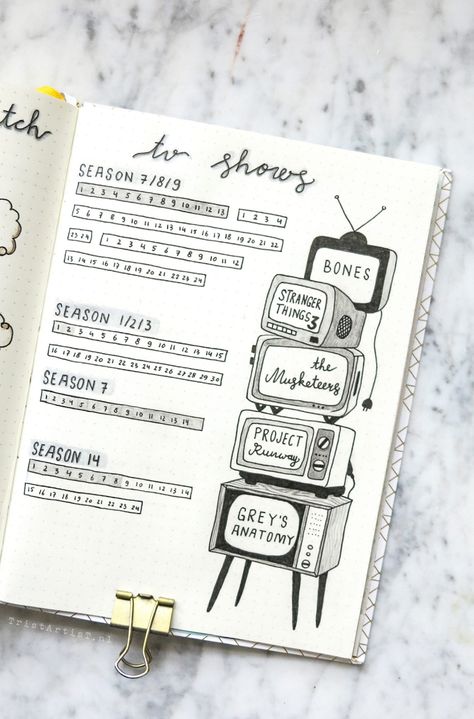 tch
tv shows
SEASON 7/8/9
1 2 3 4 5 6 7 8 9 10 11 12 13 1 2 3 4
5 6 7 8 9 10 11 12 13 14 15 16 17 18 19 20 21 22
23 24 1 2 3 4 5 6 7 8 9 10 11 12
13 14 15 16 17 18 19 20 21 22 23 24
SEASON 1/2/3
1 2 3 4 5 6 7 8 9 10 11 12 13 14 15
16 17 18 19 20 21 22 23 24 25 26 27 28 29 30
SEASON 7
1 2 3 4 5 6 7 8 9 10 11 12 13 14
SEASON 14
1 2 3 4 5 6 7 8 9 10 11 12 13 14
15 16 17 18 19 20 21 22 23 24
BONES
STRANGER
THINGS 3
the
Musketeers
PROJECT
Runway
GREY'S
ANATOMY
TristArtist.nl